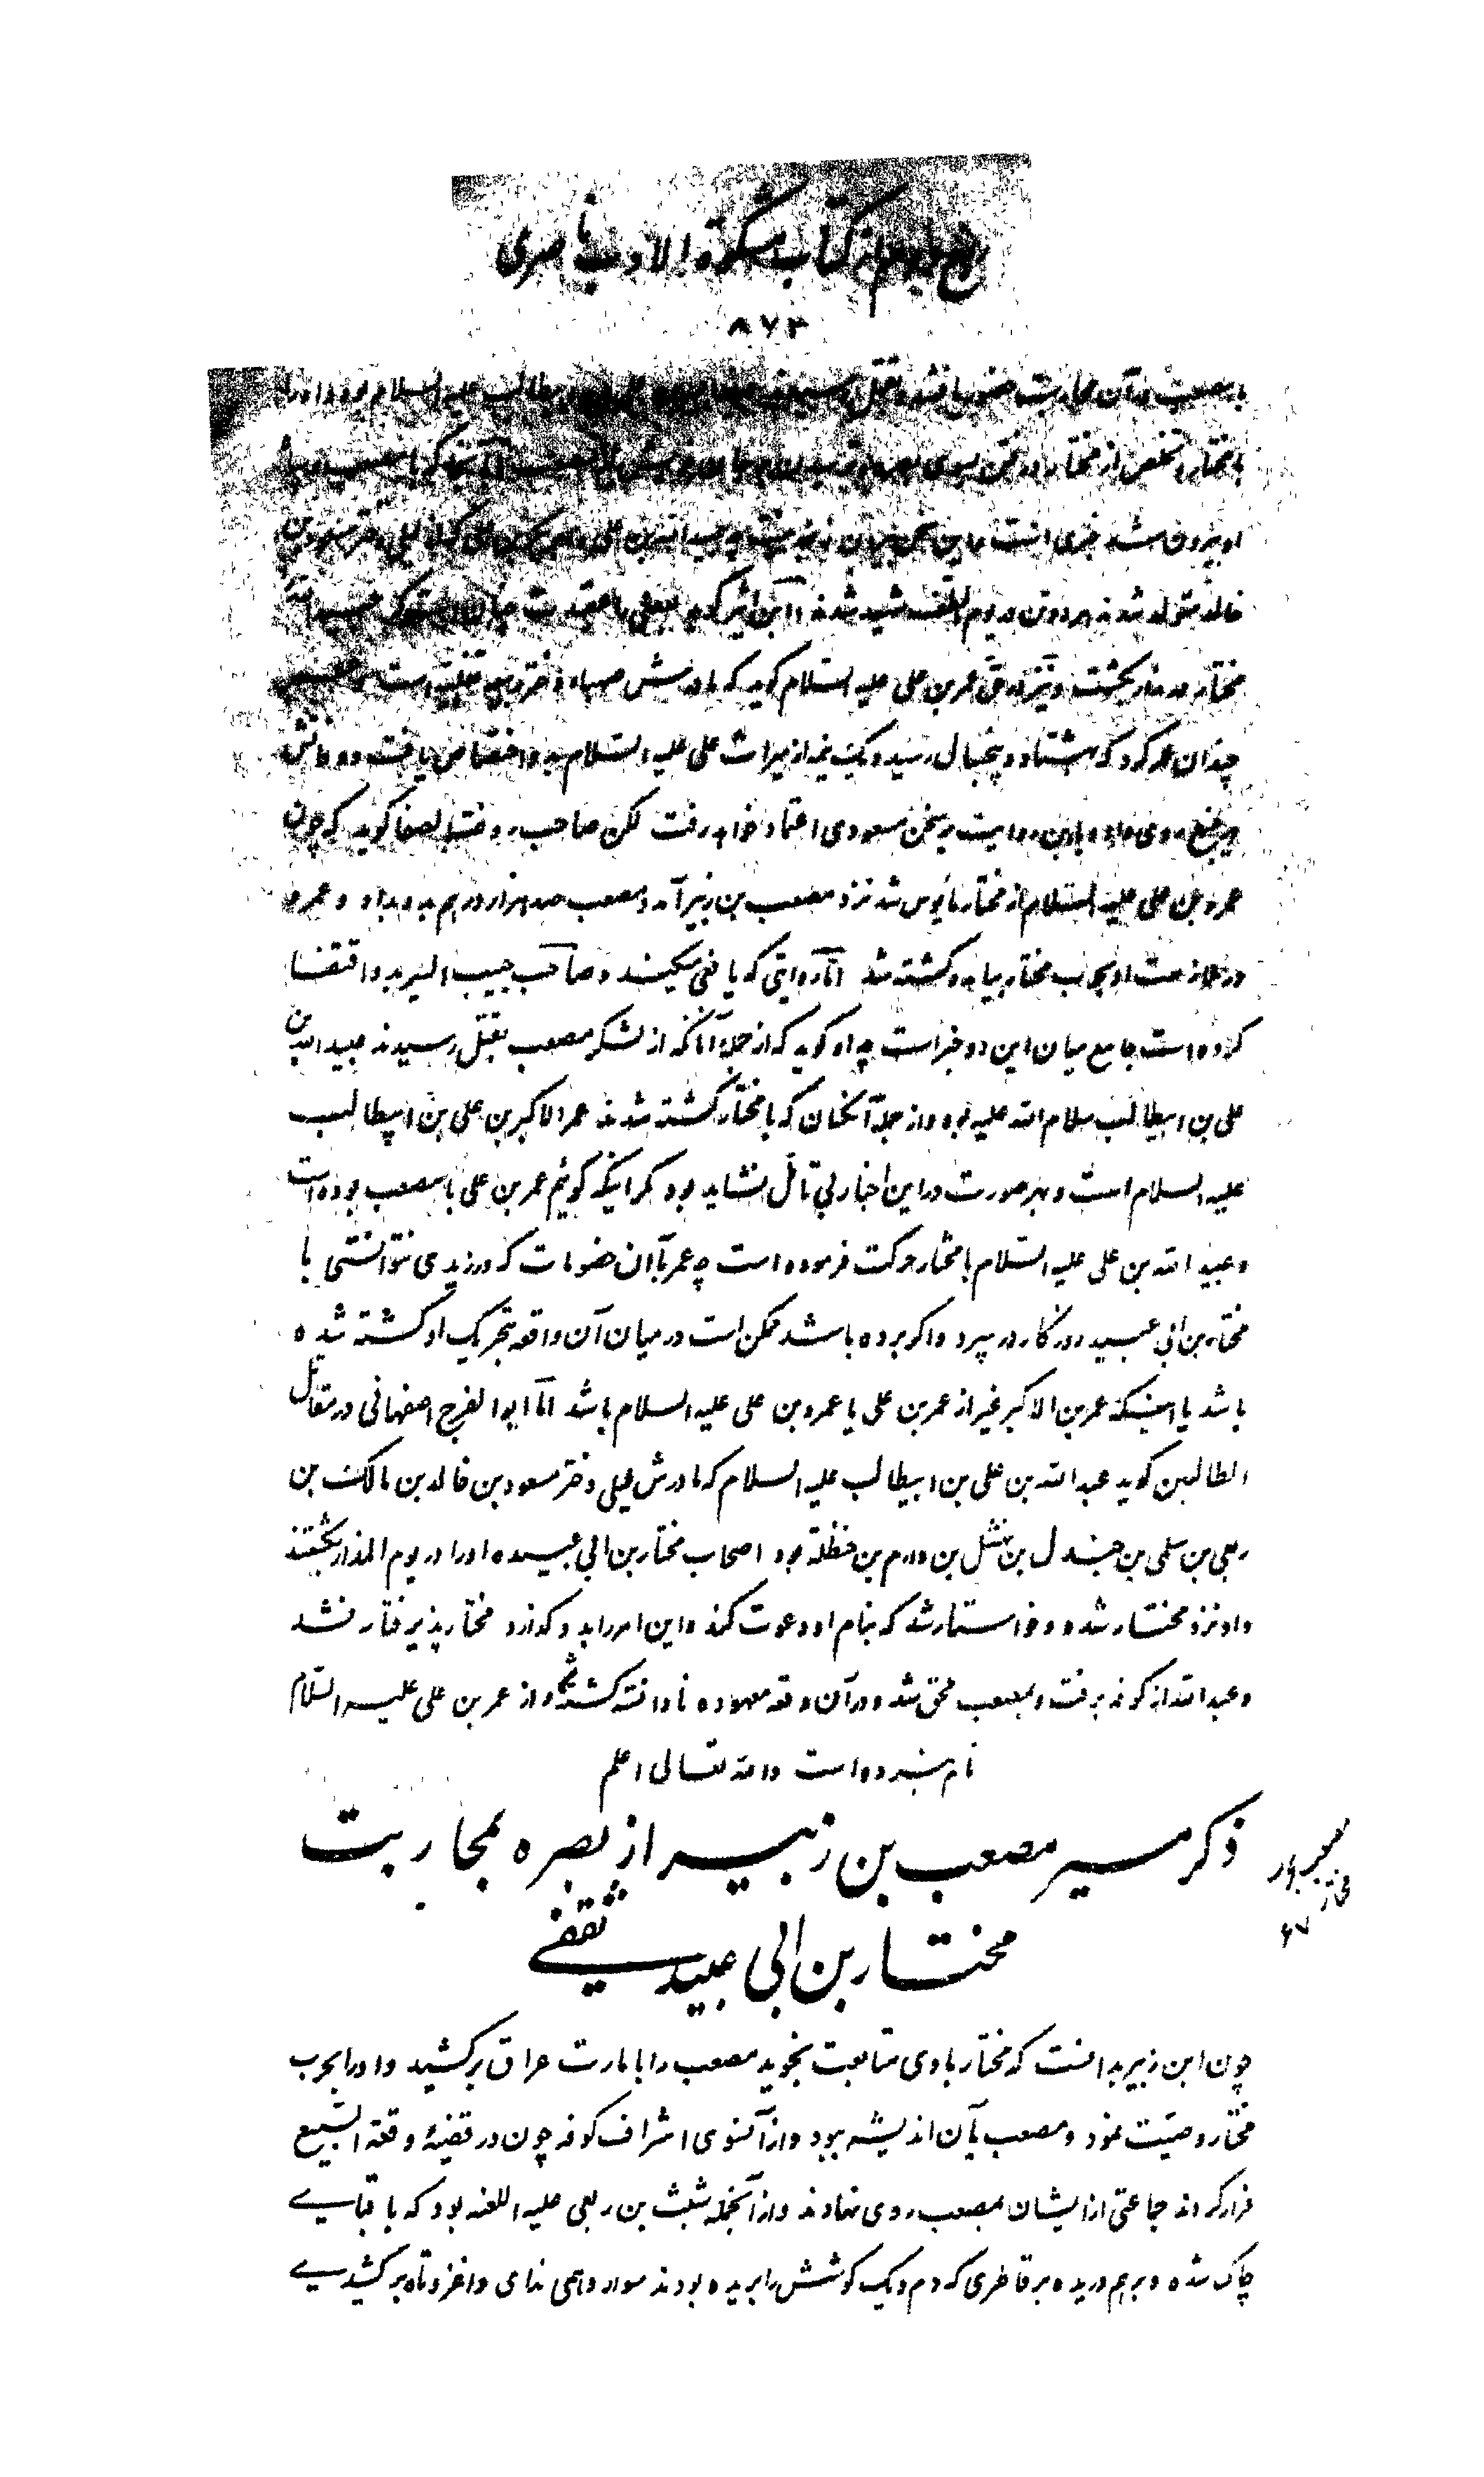 ربع دوم از کتاب مشکوة الادب ناصری
۸۷۳
با مصعب در آن محاربت حضور یافتند علی بن ابیطالب علیه السلام بود و او را
با مختار و تخلص از مختار و رفتن بسوی بصره
او بیرون شد
خالد متولد شدند هر دو تن در یوم الطف شهید شدند اما ابن اثیر گوید
مختار در مذار بکشت و نیز در حق عمر بن علی علیه السلام گوید که مادرش صهباء دختر ربیعه تغلبیه است
چندان عمر کرد که بهشتاد و پنجسال رسید و یک نیمه از میراث علی علیه السلام بدو اختصاص یافت و وفاتش
در ینبع روی داد و با این روایت بر سخن مسعودی اعتماد نخواهد رفت لکن صاحب روضة الصفا گوید که چون
عمرو بن علی علیه السلام از مختار مأیوس شد نزد مصعب بن زبیر آمد و مصعب صد هزار درهم بدو بداد و عمرو
در ملازمت او بحرب مختار بیامد و کشته شد اما روایتی که یافعی میکند و صاحب حبیب السیر بدو اقتفا
کرده است جامع میان این دو خبر است چه او گوید که از جمله آنانکه از لشکر مصعب بقتل رسیدند عبیدالله بن
علی بن ابیطالب سلام الله علیه بود و از جمله آنکسان که با مختار کشته شدند عمر الاکبر بن علی بن ابیطالب
علیه السلام است و بهر صورت در این اخبار بی تأمل نشاید بود مگر اینکه گوئیم عمر بن علی با مصعب بوده است
و عبید الله بن علی علیه السلام با مختار حرکت فرموده است چه عمر با آن خصومات که ورزیدی نتوانستی با
مختار بن ابی عبیده روزگار در سپرد و اگر برده باشد ممکن است در میان آن واقعه بتحریک او کشته شده
باشد یا اینکه عمر بن الاکبر غیر از عمر بن علی یا عمرو بن علی علیه السلام باشد اما ابوالفرج اصفهانی در مقاتل
الطالبین گوید عبدالله بن علی بن ابیطالب علیه السلام که مادرش لیلی دختر مسعود بن خالد بن مالک بن
ربعی بن سلمی بن جندل بن نهشل بن دارم بن حنظلة بود اصحاب مختار بن ابی عبیده او را در یوم المذار بکشتند
و او نزد مختار شده و خواستار شد که بنام او دعوت کند و این امر را بدو گذارد مختار پذیرفتار نشد
و عبدالله از کوفه برفت و بمصعب ملحق شد و در آن وقعه معهوده نادانسته کشته شد و از عمر بن علی علیه السلام
نام نبرده است والله تعالی اعلم
ذکر مسیر مصعب بن زبیر از بصره بمحاربت
مختار بن ابی عبید ثقفی
مختار
۶۷
چون ابن زبیر بدانست که مختار با وی متابعت نجوید مصعب را بامارت عراق برکشید و او را بحرب
مختار وصیت نمود و مصعب بآن اندیشه ببود و از آنسوی اشراف کوفه چون در قضیهٔ وقعة السبیع
فرار کردند جماعتی از ایشان بمصعب روی نهادند و از آنجمله شبث بن ربعی علیه اللعنه بود که با قبایی
چاک شده و برهم دریده بر قاطری که دم و یک گوشش را بریده بودند سوار و همی ندای واغوثاه برکشیدی